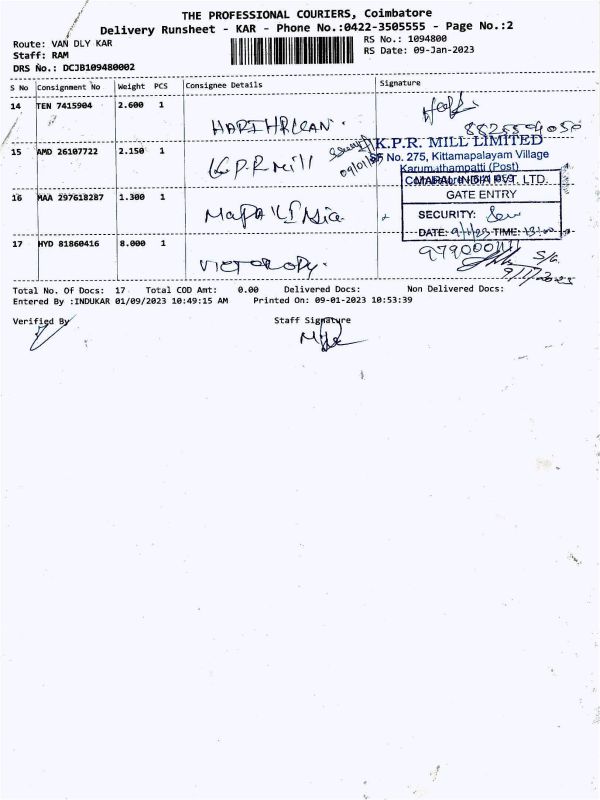 THE PROFESSIONAL COURIERS, Coimbatore
Delivery Runsheet - KAR - Phone No.:0422-3505555 - Page No.:2
Route: VAN DLY KAR
RS No.: 1094800
Staff: RAM
RS Date: 09-Jan-2023
DRS No.: DCJB109480002
S No Consignment No Weight PCS Consignee Details Signature
14 TEN 7415904 2.600 1
15 AMD 26107722 2.150 1
K.P.R mill
09/01/23
K.P.R. MILL LIMITED
No. 275, Kittamapalayam Village
Karumathampatti (Post)
16 MAA 297618287 1.300 1
Mapal India
MAPAL INDIA PVT. LTD.
GATE ENTRY
SECURITY:
DATE: 9/1/23 TIME: 13:00
17 HYD 81860416 8.000 1
9/1/2023
Total No. Of Docs: 17 Total COD Amt: 0.00 Delivered Docs: Non Delivered Docs:
Entered By :INDUKAR 01/09/2023 10:49:15 AM Printed On: 09-01-2023 10:53:39
Verified By
Staff Signature